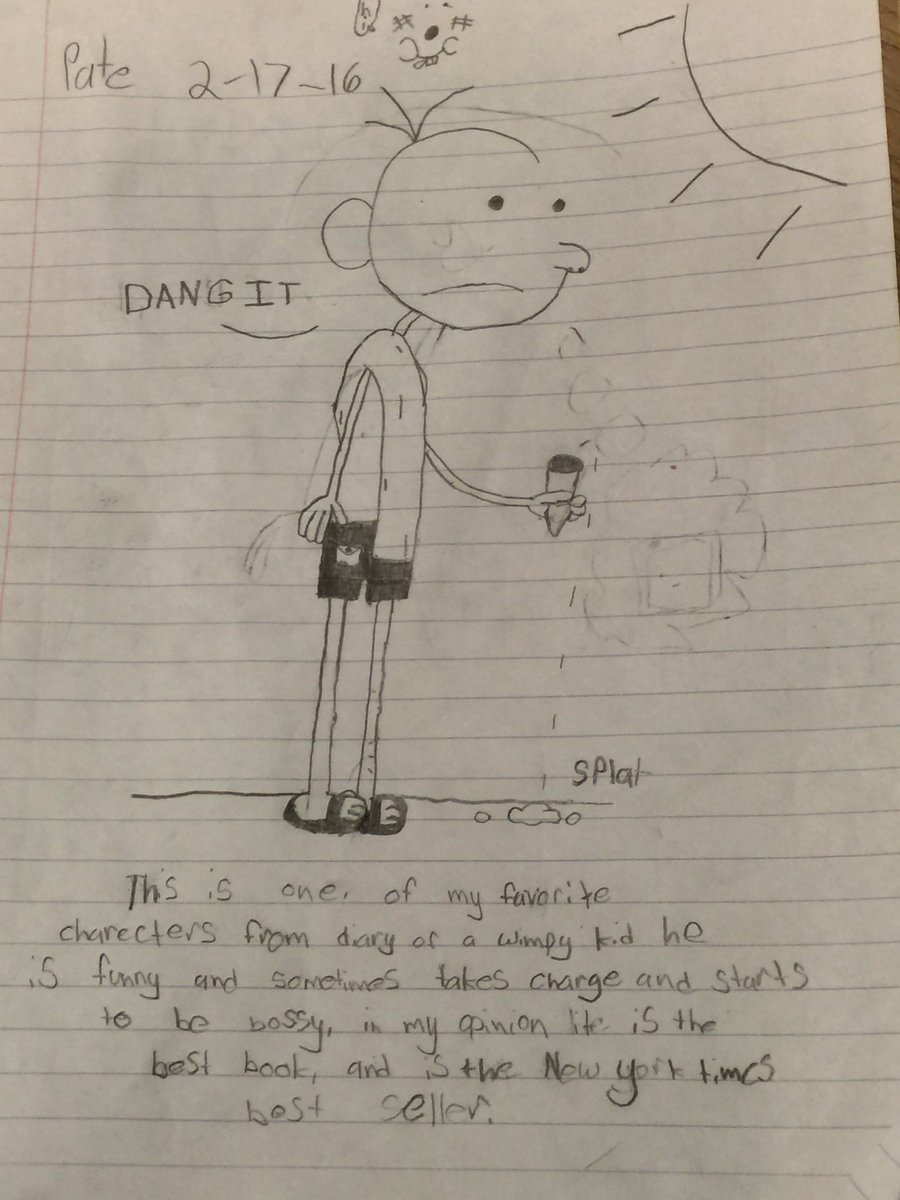 Pate 2-17-16
DANG IT
SPlat
This is one, of my favorite
charecters from diary of a wimpy kid he
is funny and sometimes takes charge and starts
to be bossy, in my opinion it is the
best book, and is the New york times
best seller.